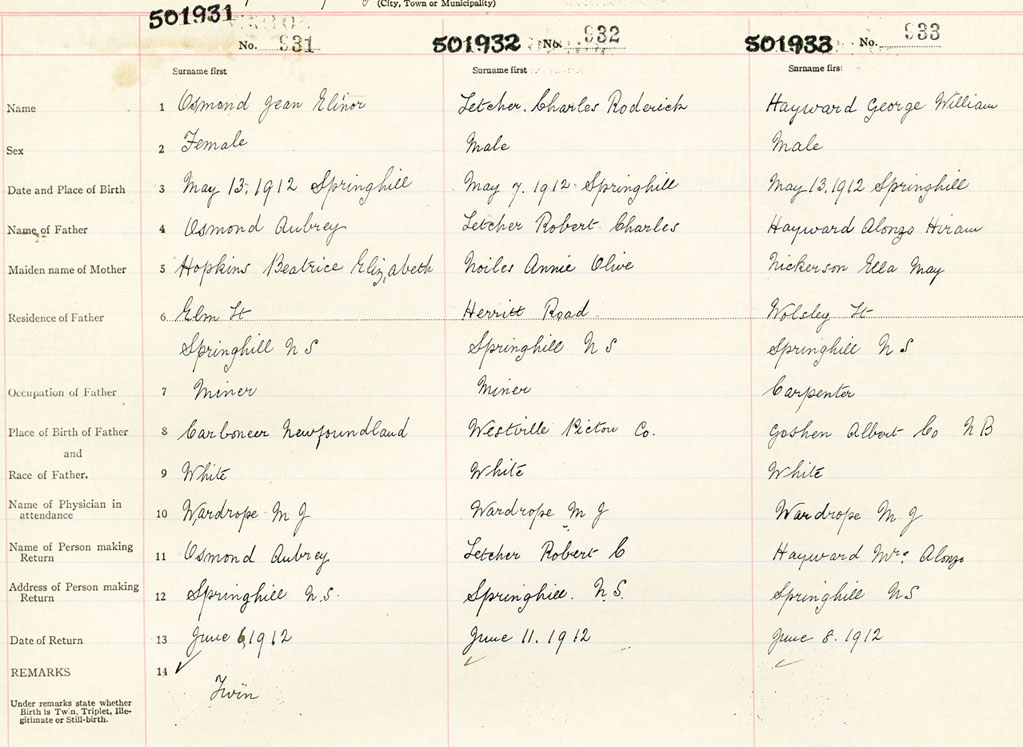 (City, Town or Municipality)
501931 No. 931 501932 No. 932 501933 No. 933
Surname first Surname first Surname first
Name 1 Osmond Jean Elinor Letcher. Charles Roderick Hayward George William
Sex 2 Female Male Male
Date and Place of Birth 3 May 13, 1912 Springhill May 7, 1912. Springhill May 13, 1912 Springhill
Name of Father 4 Osmond Aubrey Letcher Robert Charles Hayward Alonzo Hiram
Maiden name of Mother 5 Hopkins Beatrice Elizabeth Noiles Annie Olive Nickerson Ella May
Residence of Father 6 Elm St Herritt Road Wolsley St
Springhill N S Springhill N S Springhill N S
Occupation of Father 7 Miner Miner Carpenter
Place of Birth of Father 8 Carboneer Newfoundland Westville Pictou Co. Goshen Albert Co N B
and
Race of Father. 9 White White White
Name of Physician in attendance 10 Wardrope M J Wardrope M J Wardrope M J
Name of Person making Return 11 Osmond Aubrey Letcher Robert C Hayward Mrs. Alonzo
Address of Person making Return 12 Springhill N.S. Springhill. N.S. Springhill NS
Date of Return 13 June 6, 1912 June 11. 1912 June 8. 1912
REMARKS 14
Twin
Under remarks state whether
Birth is Twin, Triplet, Ille-
gitimate or Still-birth.